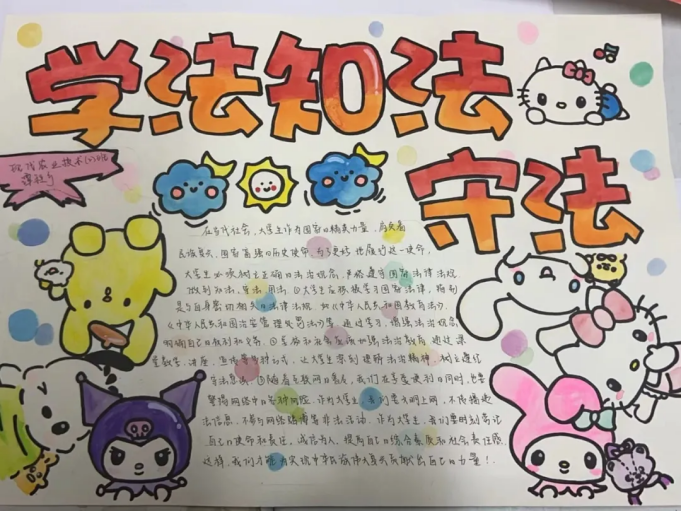 学法知法
守法
在当代社会，大学生作为国家的精英力量，肩负着
民族复兴、国家富强的历史使命，为了更好地履行这一使命，
大学生必须树立正确的法治观念，严格遵守国家法律法规
做到知法、守法、用法。①大学生应积极学习国家法律，特别
是与自身密切相关的法律法规，如《中华人民共和国教育法》、
《中华人民共和国治安管理处罚法》等，通过学习，增强法治观念
明确自己的权利和义务。②学校和社会应该加强法治教育，通过课
堂教学、讲座、等方式，让大学生深刻理解法治精神，树立遵纪
守法意识。③随着互联网的普及，我们在享受便利的同时，也要
警惕网络中的各种风险，作为大学生，我们要文明上网，不传播违
法信息，不参与网络赌博等非法活动。作为大学生，我们要时刻牢记
自己的使命和责任，诚信为人，提高自己的综合素质和社会责任感
这样，我们才能为实现中华民族伟大复兴贡献出自己的力量！